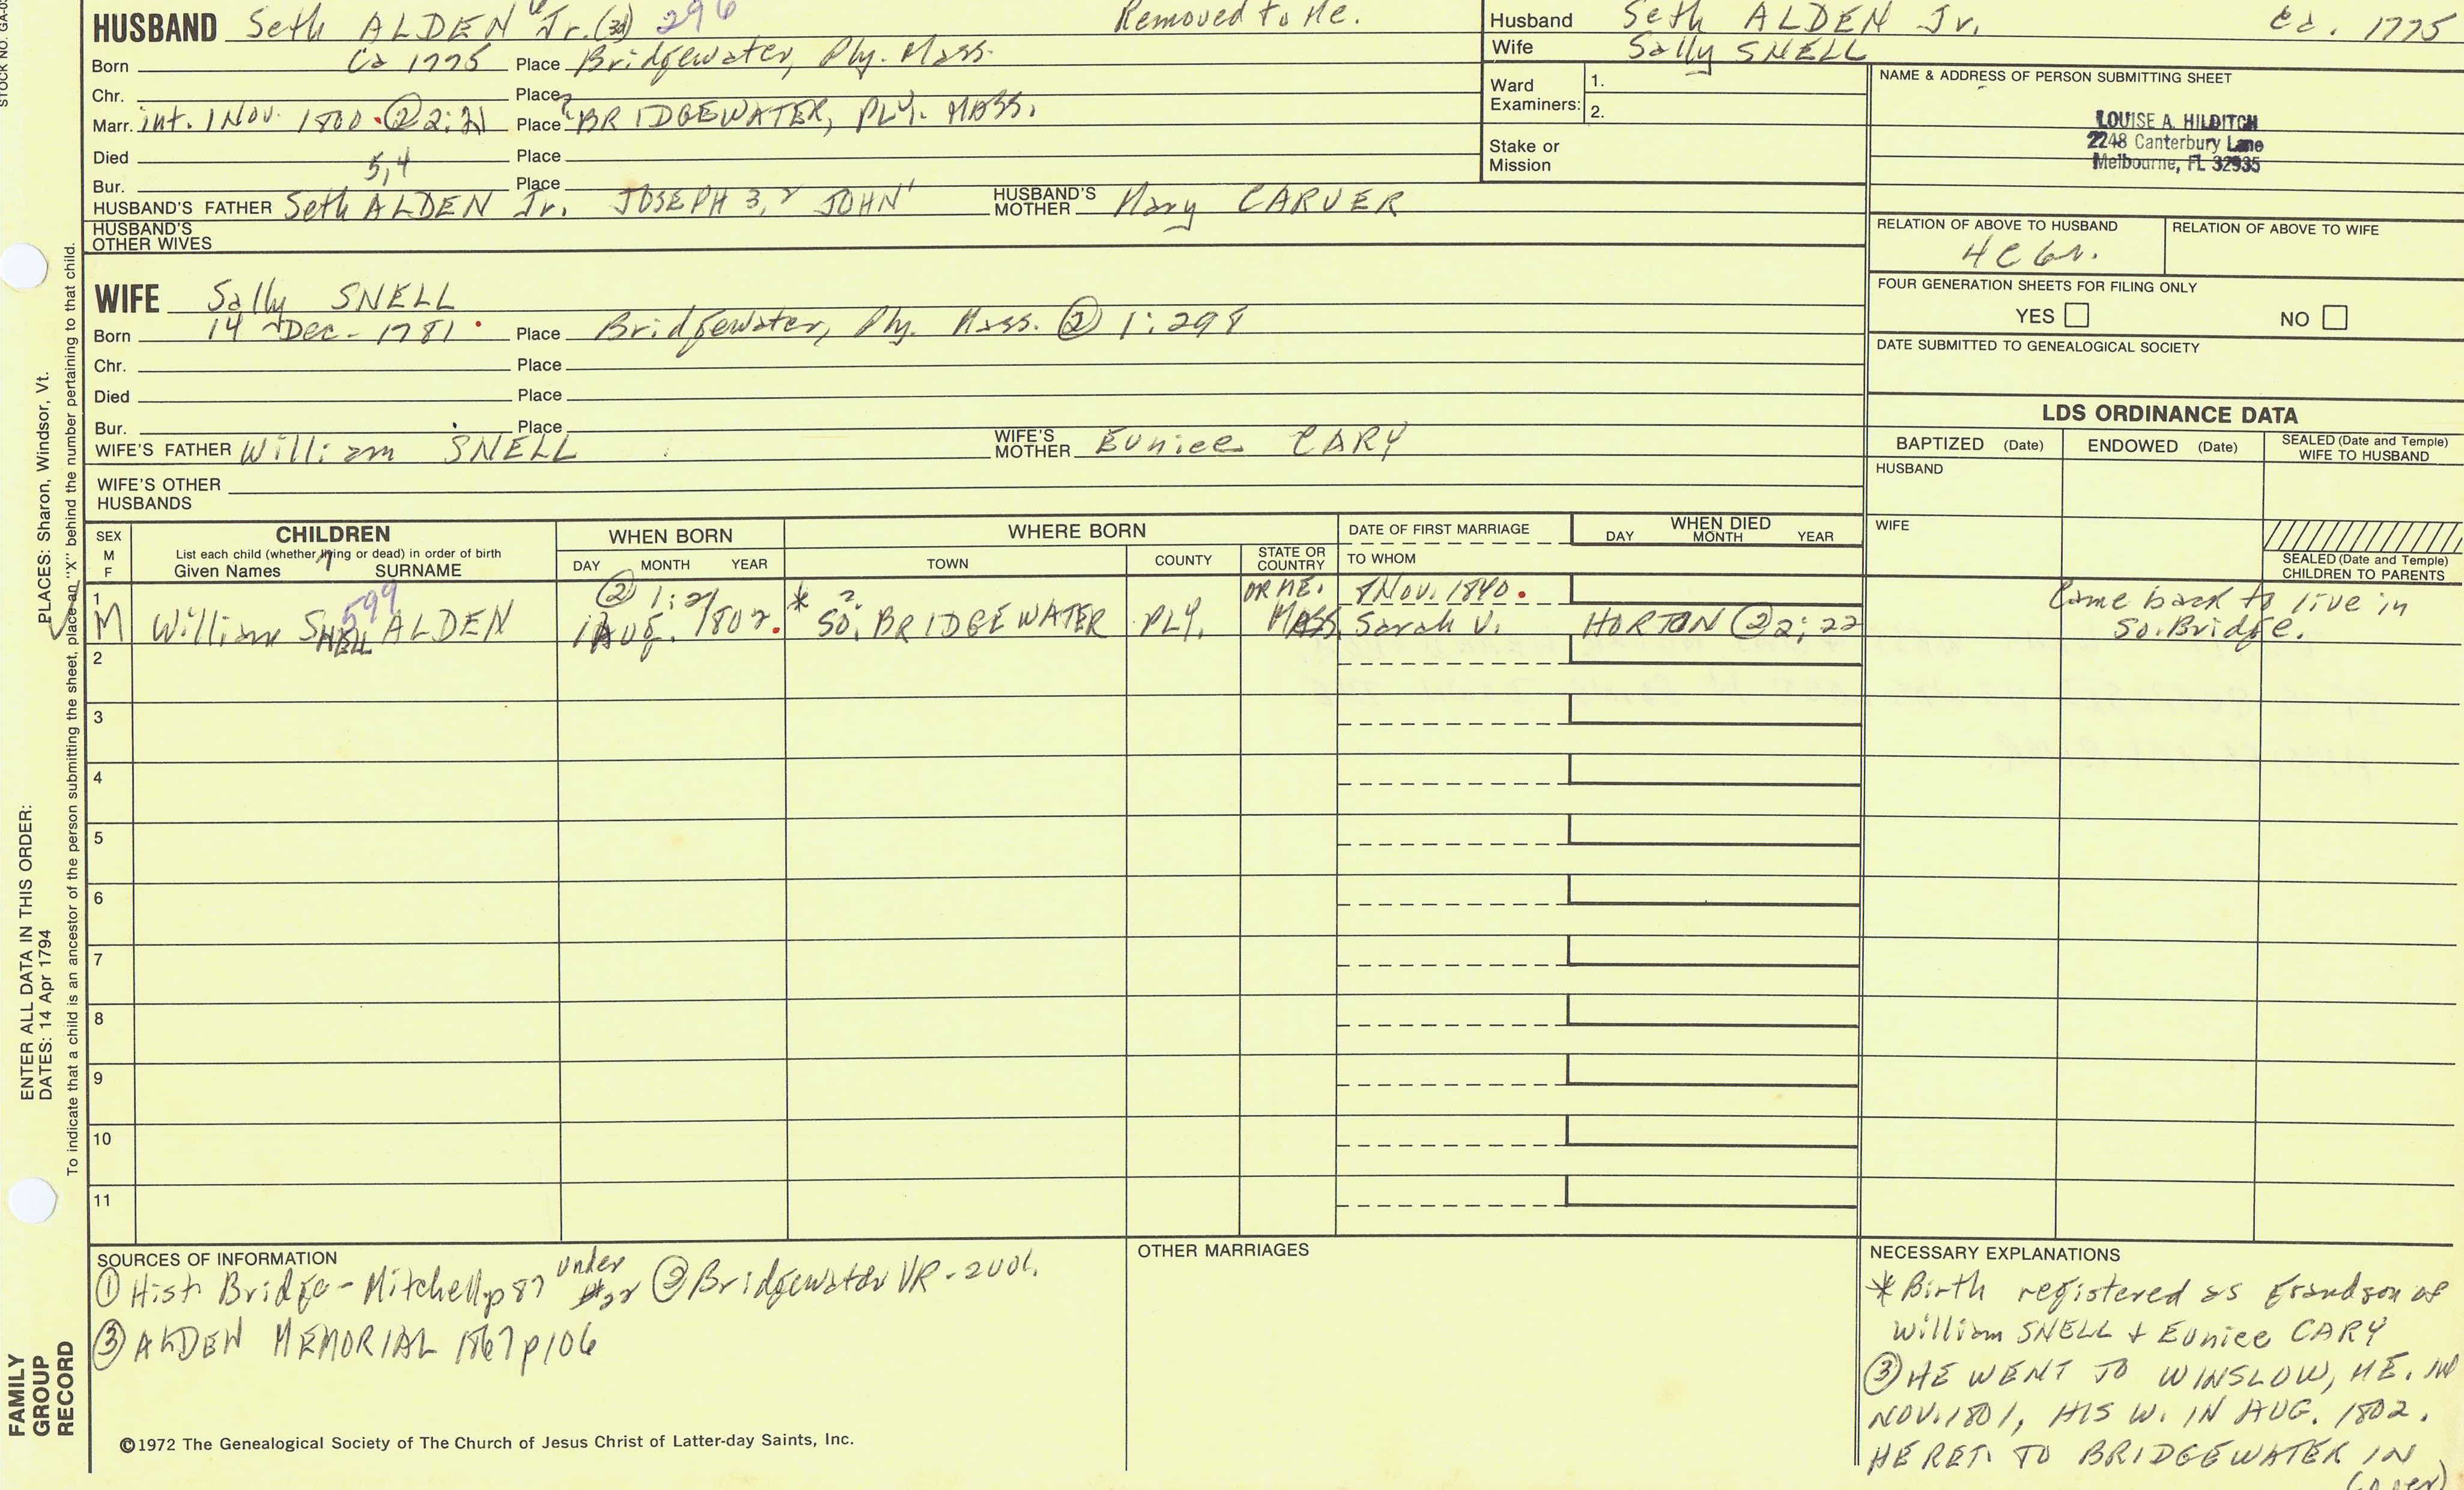 HUSBAND Seth ALDEN Jr. (3d) 296 Removed to Me.
Born Ca 1775 Place Bridgewater, Ply. Mass.
Chr. Place
Marr. int. 1 Nov. 1800. ② 2:21 Place ? BRIDGEWATER, PLY. MASS.
Died Place
Bur. Place
HUSBAND'S FATHER Seth ALDEN Jr. 5,4 JOSEPH 3,2 JOHN 1 HUSBAND'S MOTHER Mary CARVER
HUSBAND'S OTHER WIVES
Husband Seth ALDEN Jr. Ca. 1775
Wife Sally SNELL
Ward Examiners: 1.
2.
Stake or Mission
NAME & ADDRESS OF PERSON SUBMITTING SHEET
LOUISE A. HILDITCH
2248 Canterbury Lane
Melbourne, FL 32935
RELATION OF ABOVE TO HUSBAND RELATION OF ABOVE TO WIFE
FOUR GENERATION SHEETS FOR FILING ONLY
YES NO
DATE SUBMITTED TO GENEALOGICAL SOCIETY
WIFE Sally SNELL
Born 14 Dec. 1781 Place Bridgewater, Ply. Mass. ② 1:298
Chr. Place
Died Place
Bur. Place
WIFE'S FATHER William SNELL WIFE'S MOTHER Eunice CARY
WIFE'S OTHER HUSBANDS
LDS ORDINANCE DATA
BAPTIZED (Date) ENDOWED (Date) SEALED (Date and Temple) WIFE TO HUSBAND
HUSBAND
WIFE
SEALED (Date and Temple) CHILDREN TO PARENTS
SEX M F
CHILDREN
List each child (whether living or dead) in order of birth
Given Names SURNAME
WHEN BORN
DAY MONTH YEAR
WHERE BORN
TOWN COUNTY STATE OR COUNTRY
DATE OF FIRST MARRIAGE
TO WHOM
WHEN DIED
DAY MONTH YEAR
1 599 ② 1:21 * ? OR ME. 8 Nov. 1840. Came back to live in
M William SNELL ALDEN Aug. 1802. So. BRIDGEWATER PLY. MASS. Sarah V. HORTON ② 2:22 So. Bridge.
2
3
4
5
6
7
8
9
10
11
SOURCES OF INFORMATION
① Hist Bridge - Mitchell p 87 under ② Bridgewater VR - 2 vol.
③ ALDEN MEMORIAL 1867 p 106
OTHER MARRIAGES
NECESSARY EXPLANATIONS
* Birth registered as grandson of
William SNELL + Eunice CARY
③ HE WENT TO WINSLOW, ME. IN
NOV. 1801, HIS W. IN AUG. 1802.
HE RET. TO BRIDGEWATER IN
(over)
©1972 The Genealogical Society of The Church of Jesus Christ of Latter-day Saints, Inc.
FAMILY GROUP RECORD
ENTER ALL DATA IN THIS ORDER:
DATES: 14 Apr 1794
PLACES: Sharon, Windsor, Vt.
To indicate that a child is an ancestor of the person submitting the sheet, place an "X" behind the number pertaining to that child.